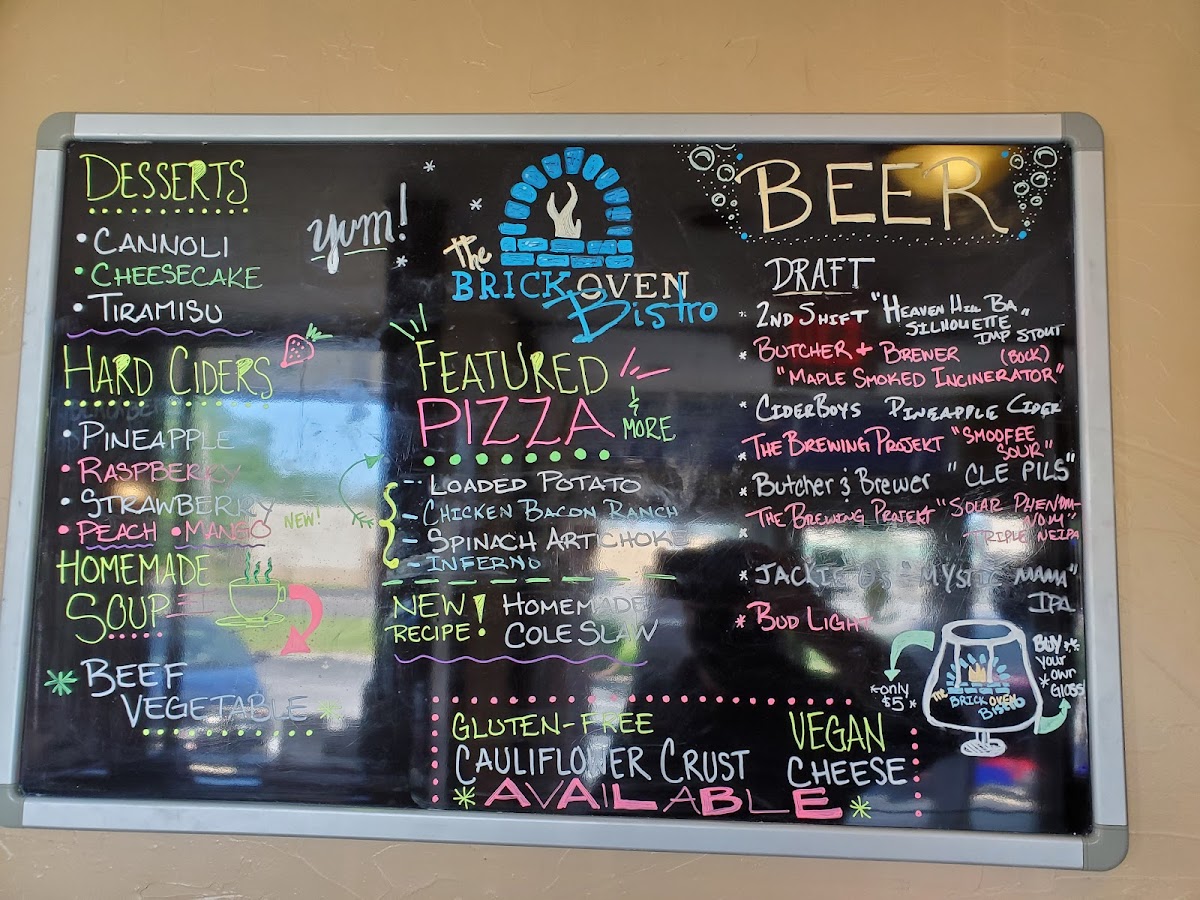 DESSERTS
• CANNOLI
• CHEESECAKE
• TIRAMISU
yum!
HARD CIDERS
• PINEAPPLE
• RASPBERRY
• STRAWBERRY
• PEACH • MANGO NEW!
HOMEMADE
SOUP
* BEEF
VEGETABLE *
The
BRICK OVEN
Bistro
FEATURED
PIZZA
& MORE
- LOADED POTATO
- CHICKEN BACON RANCH
- SPINACH ARTICHOKE
- INFERNO
NEW RECIPE! HOMEMADE
COLE SLAW
GLUTEN-FREE
CAULIFLOWER CRUST
VEGAN
CHEESE
* AVAILABLE *
BEER
DRAFT
* 2ND SHIFT "HEAVEN HILL BA
SILHOUETTE"
IMP STOUT
* BUTCHER & BREWER (BOCK)
"MAPLE SMOKED INCINERATOR"
* CIDERBOYS PINEAPPLE CIDER
* THE BREWING PROJEKT "SMOOFEE
SOUR"
* Butcher & Brewer "CLE PILS"
* THE BREWING PROJEKT "SOLAR PHENOM-
NOM"
TRIPLE NEIPA
* JACKIE O'S "MYSTIC MAMA"
IPA
* BUD LIGHT
*only
$5*
BUY
your
* own
GLASS
THE
BRICK OVEN
BISTRO